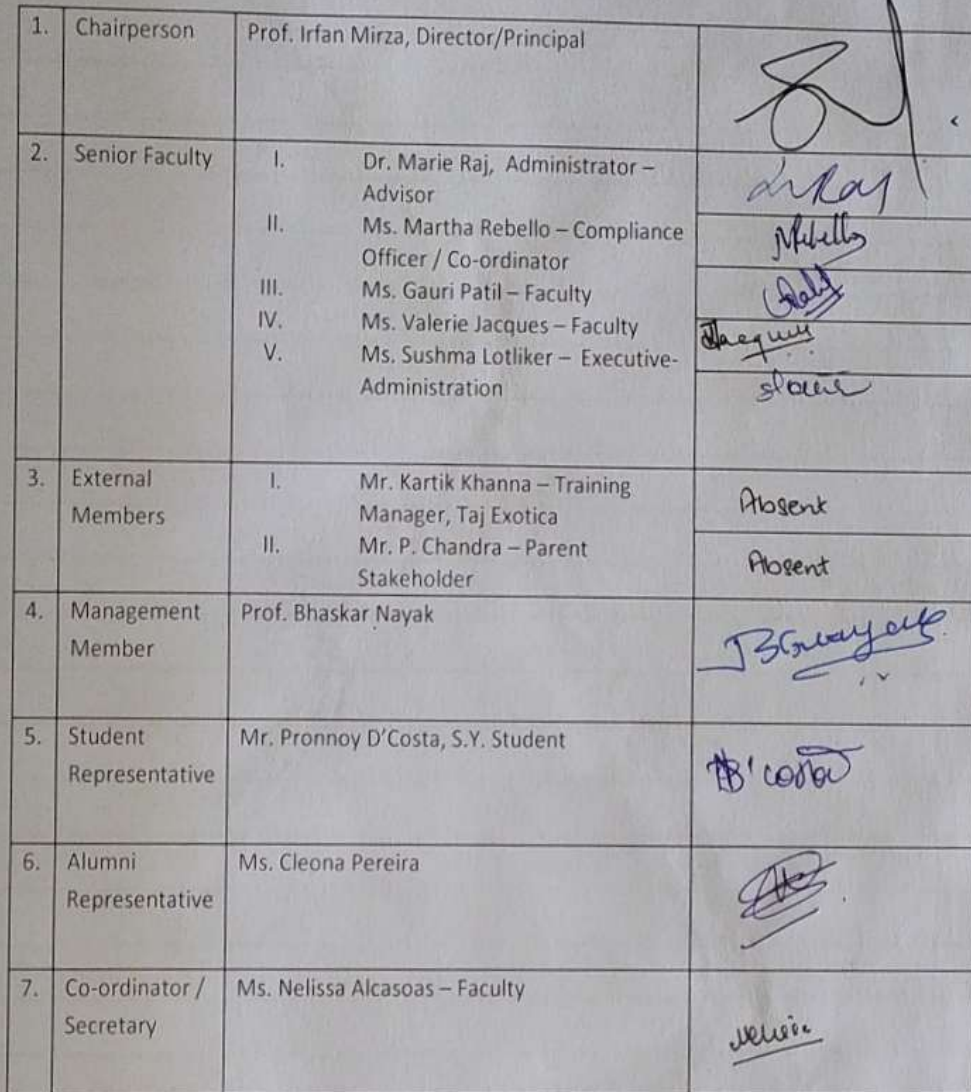 1. Chairperson Prof. Irfan Mirza, Director/Principal
2. Senior Faculty I. Dr. Marie Raj, Administrator –
Advisor
II. Ms. Martha Rebello – Compliance
Officer / Co-ordinator
III. Ms. Gauri Patil – Faculty
IV. Ms. Valerie Jacques – Faculty
V. Ms. Sushma Lotliker – Executive-
Administration
3. External I. Mr. Kartik Khanna – Training
Members Manager, Taj Exotica
Absent
II. Mr. P. Chandra – Parent
Stakeholder
Absent
4. Management Prof. Bhaskar Nayak
Member
5. Student Mr. Pronnoy D'Costa, S.Y. Student
Representative
6. Alumni Ms. Cleona Pereira
Representative
7. Co-ordinator / Ms. Nelissa Alcasoas – Faculty
Secretary